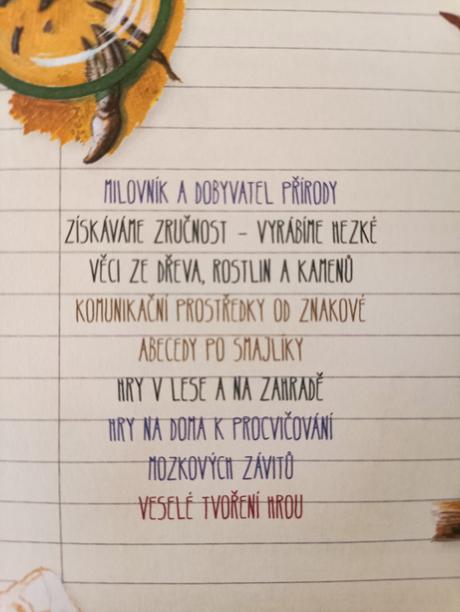 MILOVNÍK A DOBYVATEL PŘÍRODY
ZÍSKÁVÁME ZRUČNOST – VYRÁBÍME HEZKÉ
VĚCI ZE DŘEVA, ROSTLIN A KAMENŮ
KOMUNIKAČNÍ PROSTŘEDKY OD ZNAKOVÉ
ABECEDY PO SMAJLÍKY
HRY V LESE A NA ZAHRADĚ
HRY NA DOMA K PROCVIČOVÁNÍ
MOZKOVÝCH ZÁVITŮ
VESELÉ TVOŘENÍ HROU